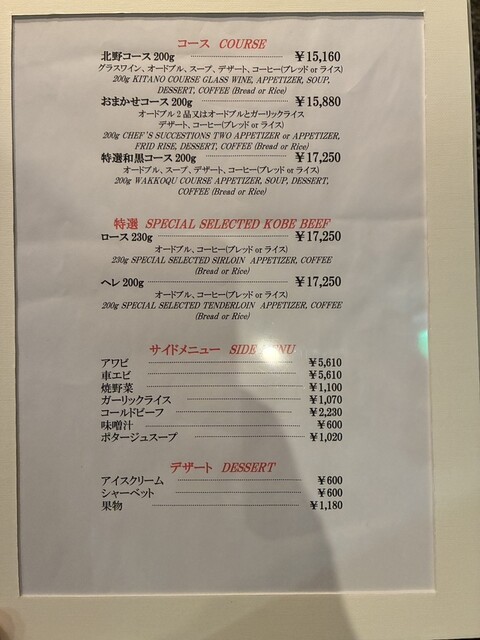 コース COURSE
北野コース 200g ¥15,160
グラスワイン、オードブル、スープ、デザート、コーヒー(ブレッド or ライス)
200g KITANO COURSE GLASS WINE, APPETIZER, SOUP,
DESSERT, COFFEE (Bread or Rice)
おまかせコース 200g ¥15,880
オードブル2品又はオードブルとガーリックライス
デザート、コーヒー(ブレッド or ライス)
200g CHEF'S SUCCESTIONS TWO APPETIZER or APPETIZER,
FRID RISE, DESSERT, COFFEE (Bread or Rice)
特選和黒コース 200g ¥17,250
オードブル、スープ、デザート、コーヒー(ブレッド or ライス)
200g WAKKOQU COURSE APPETIZER, SOUP, DESSERT,
COFFEE (Bread or Rice)
特選 SPECIAL SELECTED KOBE BEEF
ロース 230g ¥17,250
オードブル、コーヒー(ブレッド or ライス)
230g SPECIAL SELECTED SIRLOIN APPETIZER, COFFEE
(Bread or Rice)
ヘレ 200g ¥17,250
オードブル、コーヒー(ブレッド or ライス)
200g SPECIAL SELECTED TENDERLOIN APPETIZER, COFFEE
(Bread or Rice)
サイドメニュー SIDE MENU
アワビ ¥5,610
車エビ ¥5,610
焼野菜 ¥1,100
ガーリックライス ¥1,070
コールドビーフ ¥2,230
味噌汁 ¥600
ポタージュスープ ¥1,020
デザート DESSERT
アイスクリーム ¥600
シャーベット ¥600
果物 ¥1,180